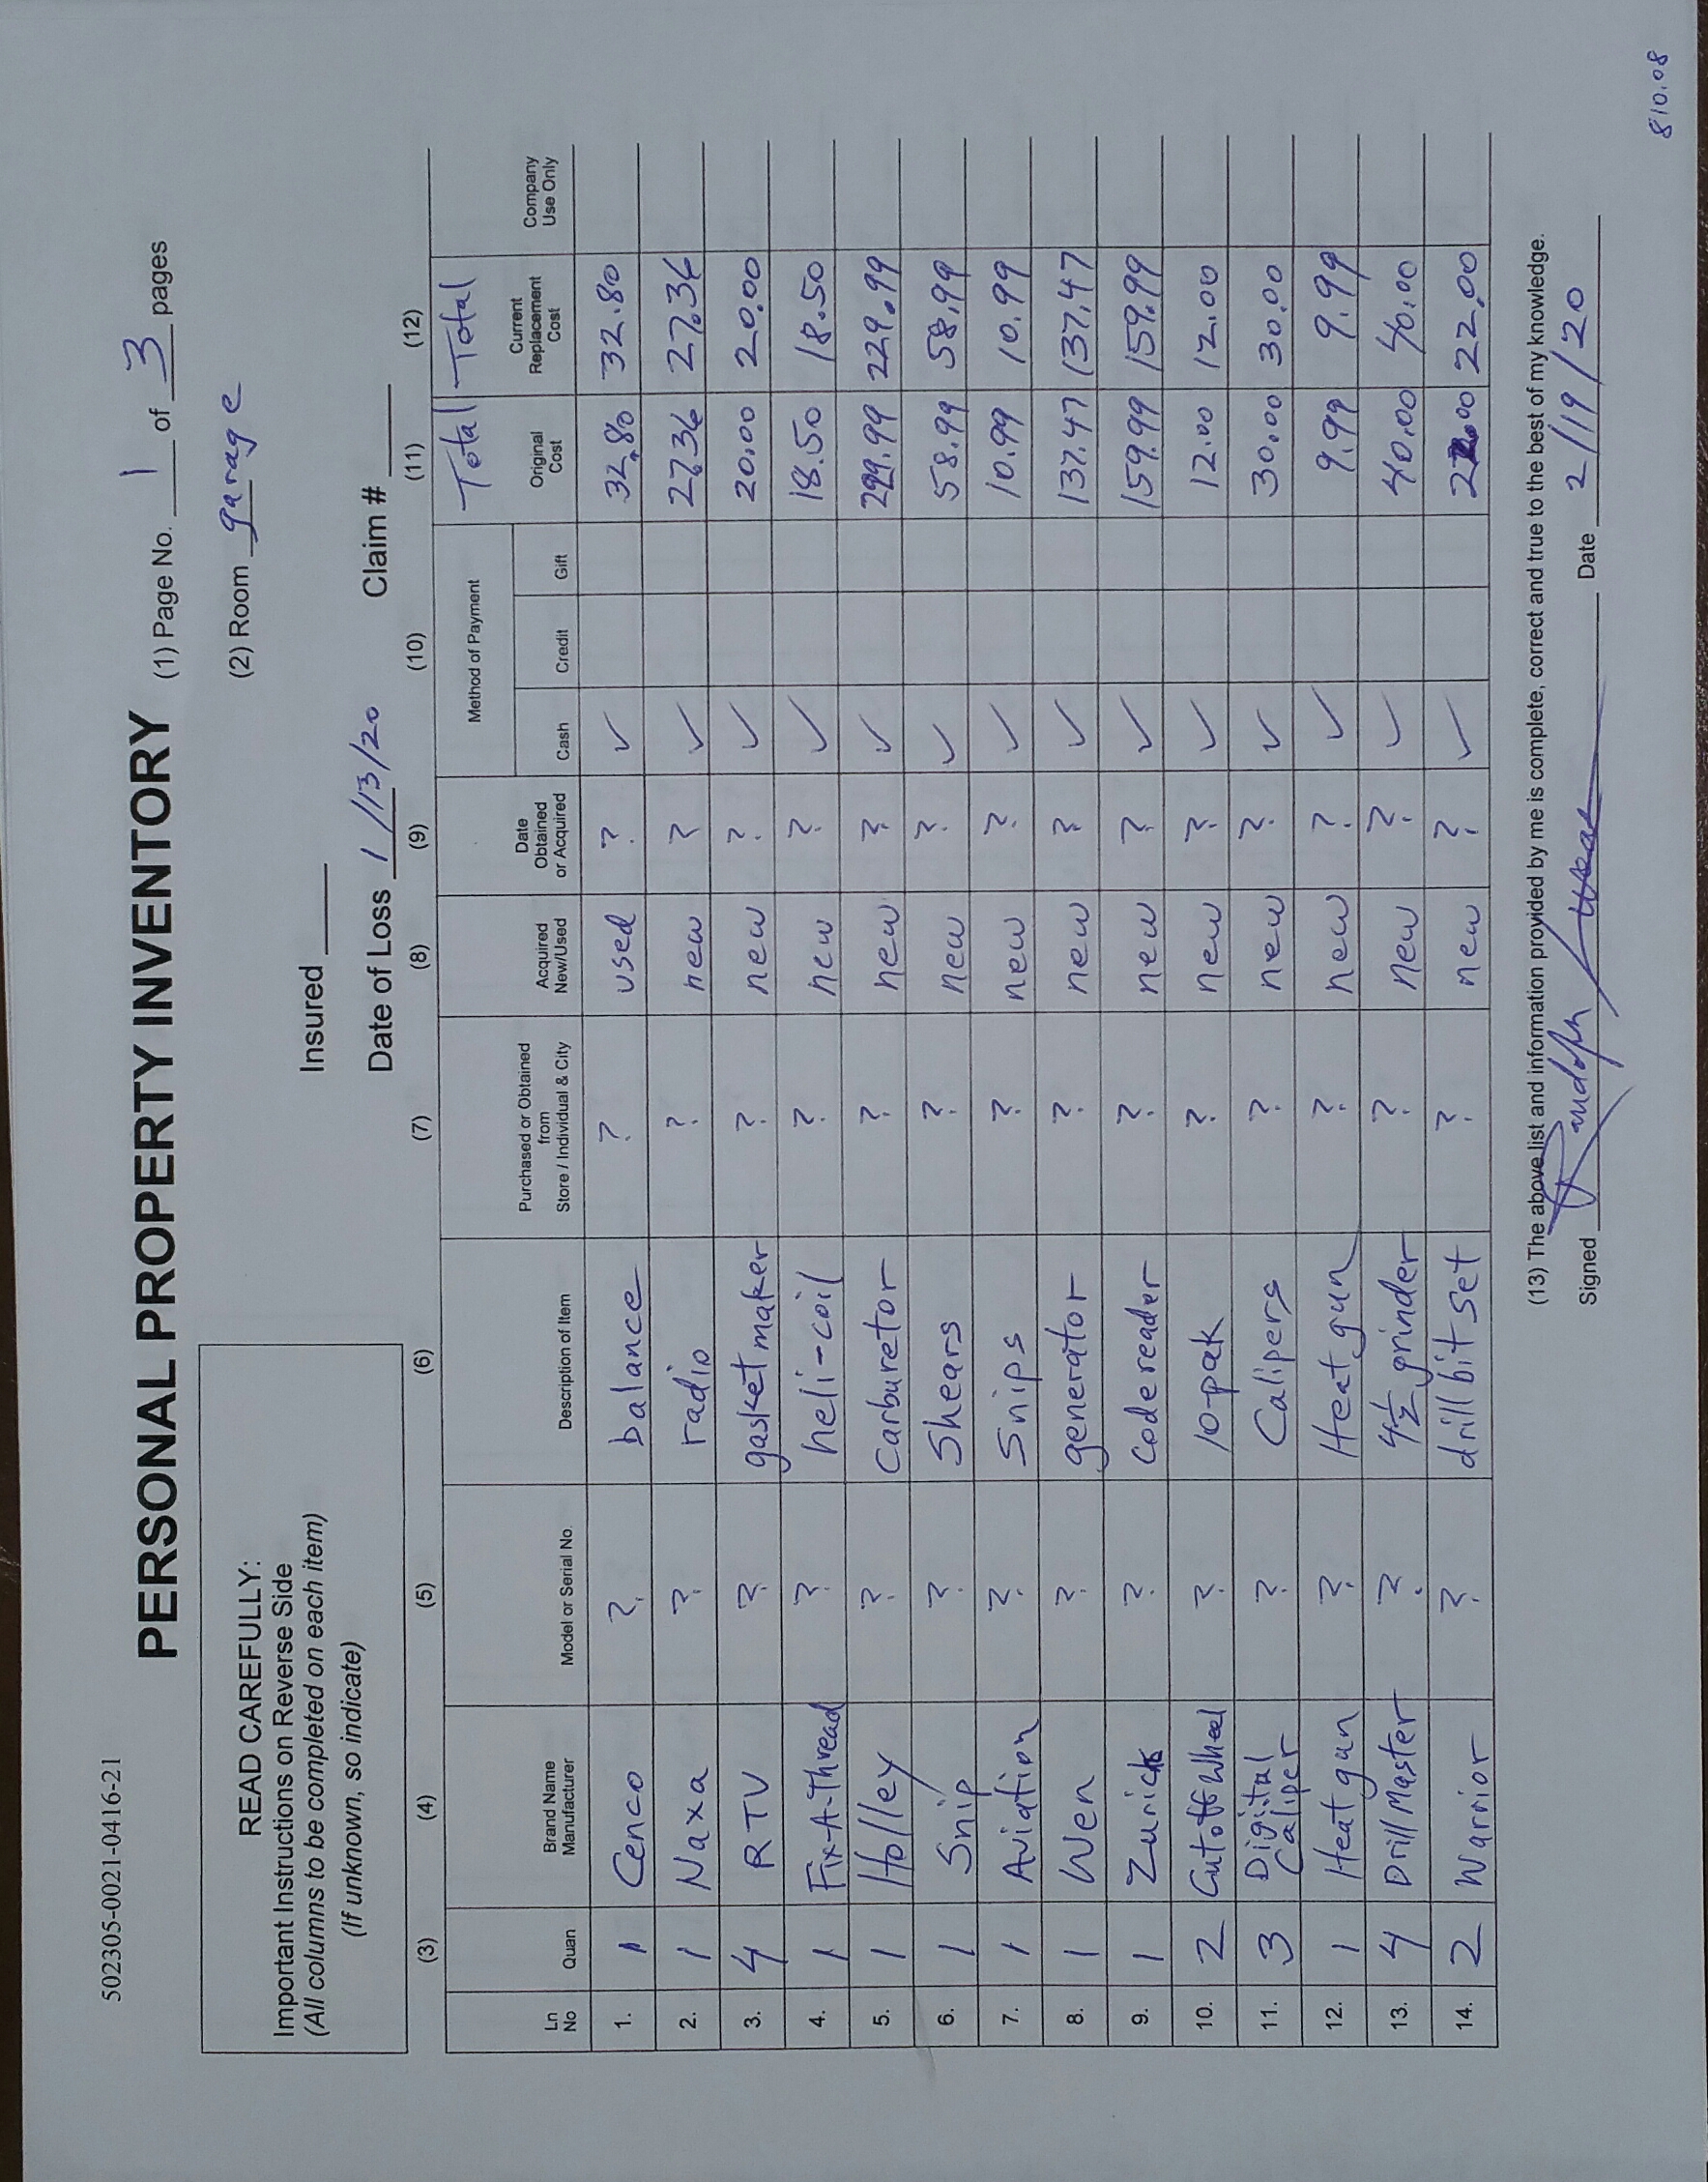 502305-0021-0416-21
PERSONAL PROPERTY INVENTORY (1) Page No. 1 of 3 pages
READ CAREFULLY:
Important Instructions on Reverse Side
(All columns to be completed on each item)
(If unknown, so indicate)
(2) Room garage
Insured
Date of Loss 1/13/20 Claim #
(3) (4) (5) (6) (7) (8) (9) (10) (11) (12)
Total Total
Ln No Quan Brand Name Manufacturer Model or Serial No. Description of Item Purchased or Obtained from Store / Individual & City Acquired New/Used Date Obtained or Acquired Method of Payment Cash Credit Gift Original Cost Current Replacement Cost Company Use Only
1. 1 Cenco ? balance ? used ? ✓ 32.80 32.80
2. 1 Naxa ? radio ? new ? ✓ 27.36 27.36
3. 4 RTV ? gasket maker ? new ? ✓ 20.00 20.00
4. 1 Fix-A-Thread ? heli-coil ? new ? ✓ 18.50 18.50
5. 1 Holley ? Carburetor ? new ? ✓ 229.99
6. 1 Snip ? Shears ? new ? ✓ 58.99 58.99
7. 1 Aviation ? Snips ? new ? ✓ 10.99 10.99
8. 1 Wen ? generator ? new ? ✓ 137.47 137.47
9. 1 Zurich ? Code reader ? new ? ✓ 159.99 159.99
10. 2 Cutoff Wheel ? 10-pak ? new ? ✓ 12.00 12.00
11. 3 Digital Caliper ? Calipers ? new ? ✓ 30.00 30.00
12. 1 Heat gun ? Heat gun ? new ? ✓ 9.99 9.99
13. 4 Drill Master ? 4½ grinder ? new ? ✓ 40.00 40.00
14. 2 Warrior ? drill bit set ? new ? ✓ 22.00 22.00
(13) The above list and information provided by me is complete, correct and true to the best of my knowledge.
Signed Date 2/19/20
810.08